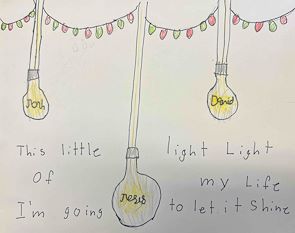 Josh
David
Jesis
This little light Light
Of my Life
I'm going to let it Shine